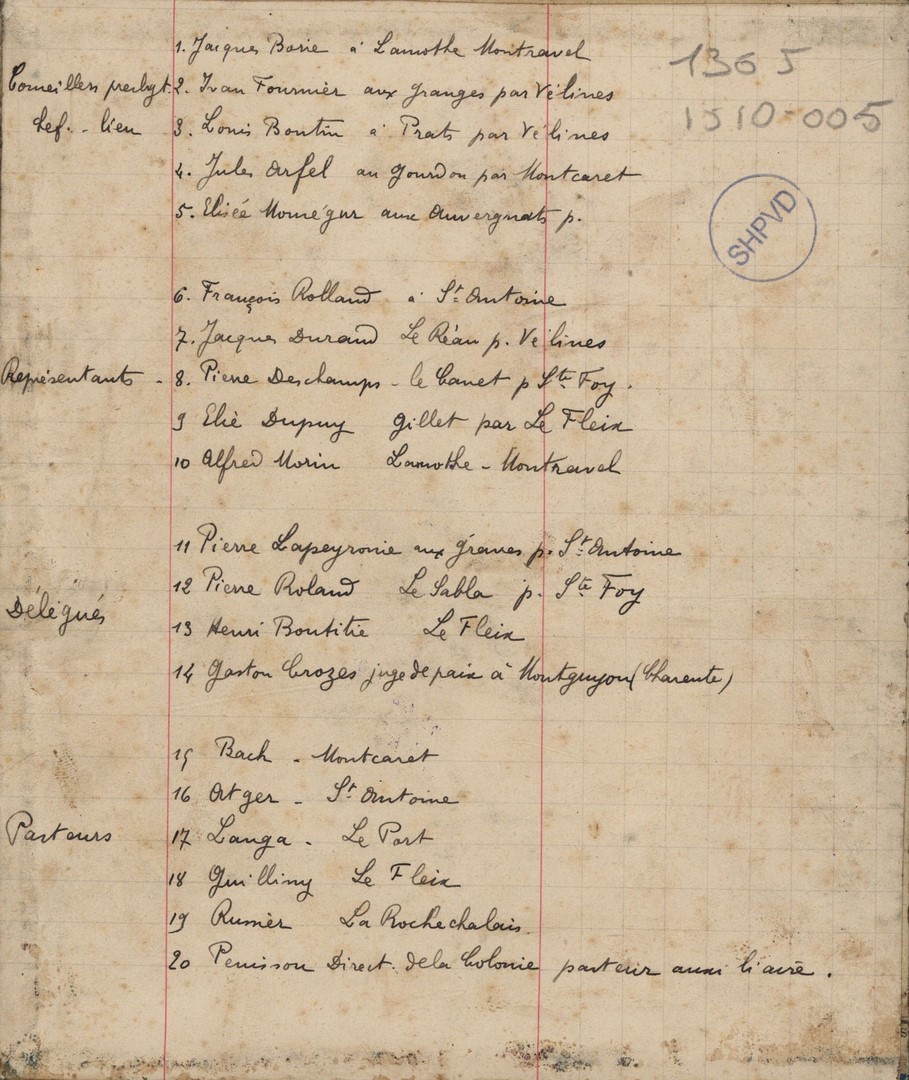 1365
1510-005
SHPVD
1. Jacques Borie à Lamothe Montravel
Conseillers presbyt. 2. Ivan Fournier aux Granges par Vélines
lieu 3. Louis Boutin à Prats par Vélines
4. Jules Arfel au Gourdon par Montcaret
5. Elisée Momégur aux Auvergnats p.
6. François Rolland à St Antoine
7. Jacques Durand Le Réau p. Vélines
Représentants - 8. Pierre Deschamps - le Canet p Ste Foy.
9 Elie Dupuy Gillet par Le Fleix
10 Alfred Morin Lamothe - Montravel
11 Pierre Lapeyronie aux Graves p. St Antoine
12 Pierre Roland Le Sabla p. Ste Foy
Délégués
13 Henri Boutitie Le Fleix
14 Gaston Crozes juge de paix à Montguyon (Charente)
15 Bach - Montcaret
16 Atger - St Antoine
Pasteurs 17 Langa - Le Port
18 Guilliny Le Fleix
19 Rumier La Rochechalais
20 Penisson Direct. de la Colonie pasteur